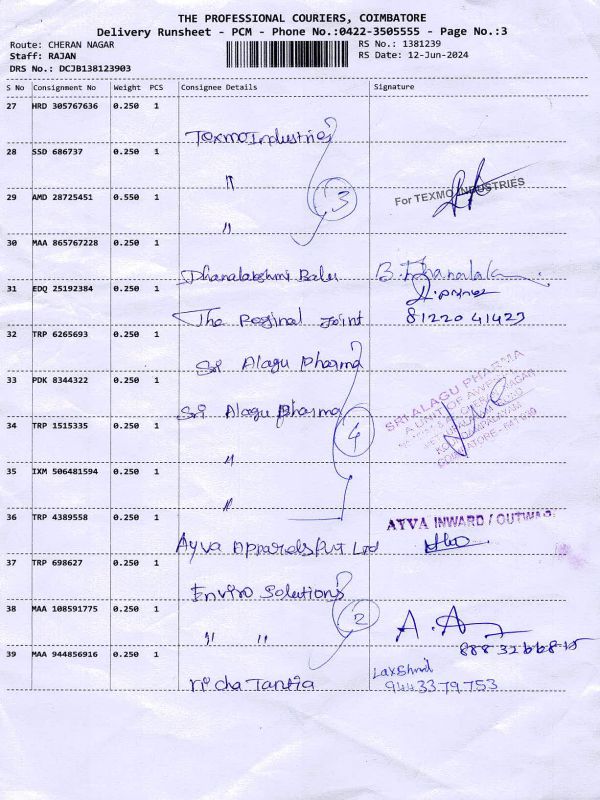 THE PROFESSIONAL COURIERS, COIMBATORE
Delivery Runsheet - PCM - Phone No.:0422-3505555 - Page No.:3
Route: CHERAN NAGAR RS No.: 1381239
Staff: RAJAN RS Date: 12-Jun-2024
DRS No.: DCJB138123903
S No Consignment No Weight PCS Consignee Details Signature
27 HRD 305767636 0.250 1
Texmo Industries
28 SSD 686737 0.250 1
"
3
For TEXMO INDUSTRIES
29 AMD 28725451 0.550 1
"
30 MAA 865767228 0.250 1
Dhanalakshmi Balu
31 EDQ 25192384 0.250 1
The Reginal Joint 81220 41423
32 TRP 6265693 0.250 1
Sri Alagu Pharma
33 PDK 8344322 0.250 1
Sri Alagu Pharma
SRI ALAGU PHARMA
34 TRP 1515335 0.250 1
4
"
35 IXM 506481594 0.250 1
"
36 TRP 4389558 0.250 1
AYVA INWARD / OUTWAR
Ayva Apparels Pvt Ltd
37 TRP 698627 0.250 1
Enviro Solutions
38 MAA 108591775 0.250 1
2
" "
A.
39 MAA 944856916 0.250 1
Laxshmi
Tantia 9443379753